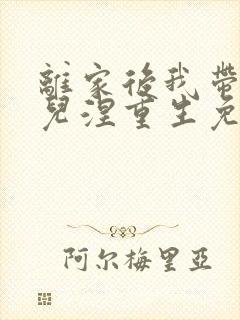 離家後我帶
兒涅重生免
阿尔梅里亞